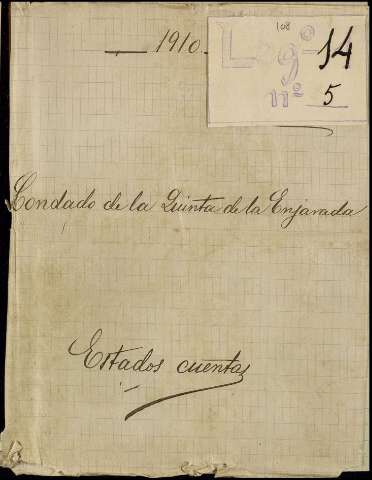 108
Leg.º 14
nº 5
1910
Condado de la Quinta de la Enjarada
Estados cuentas